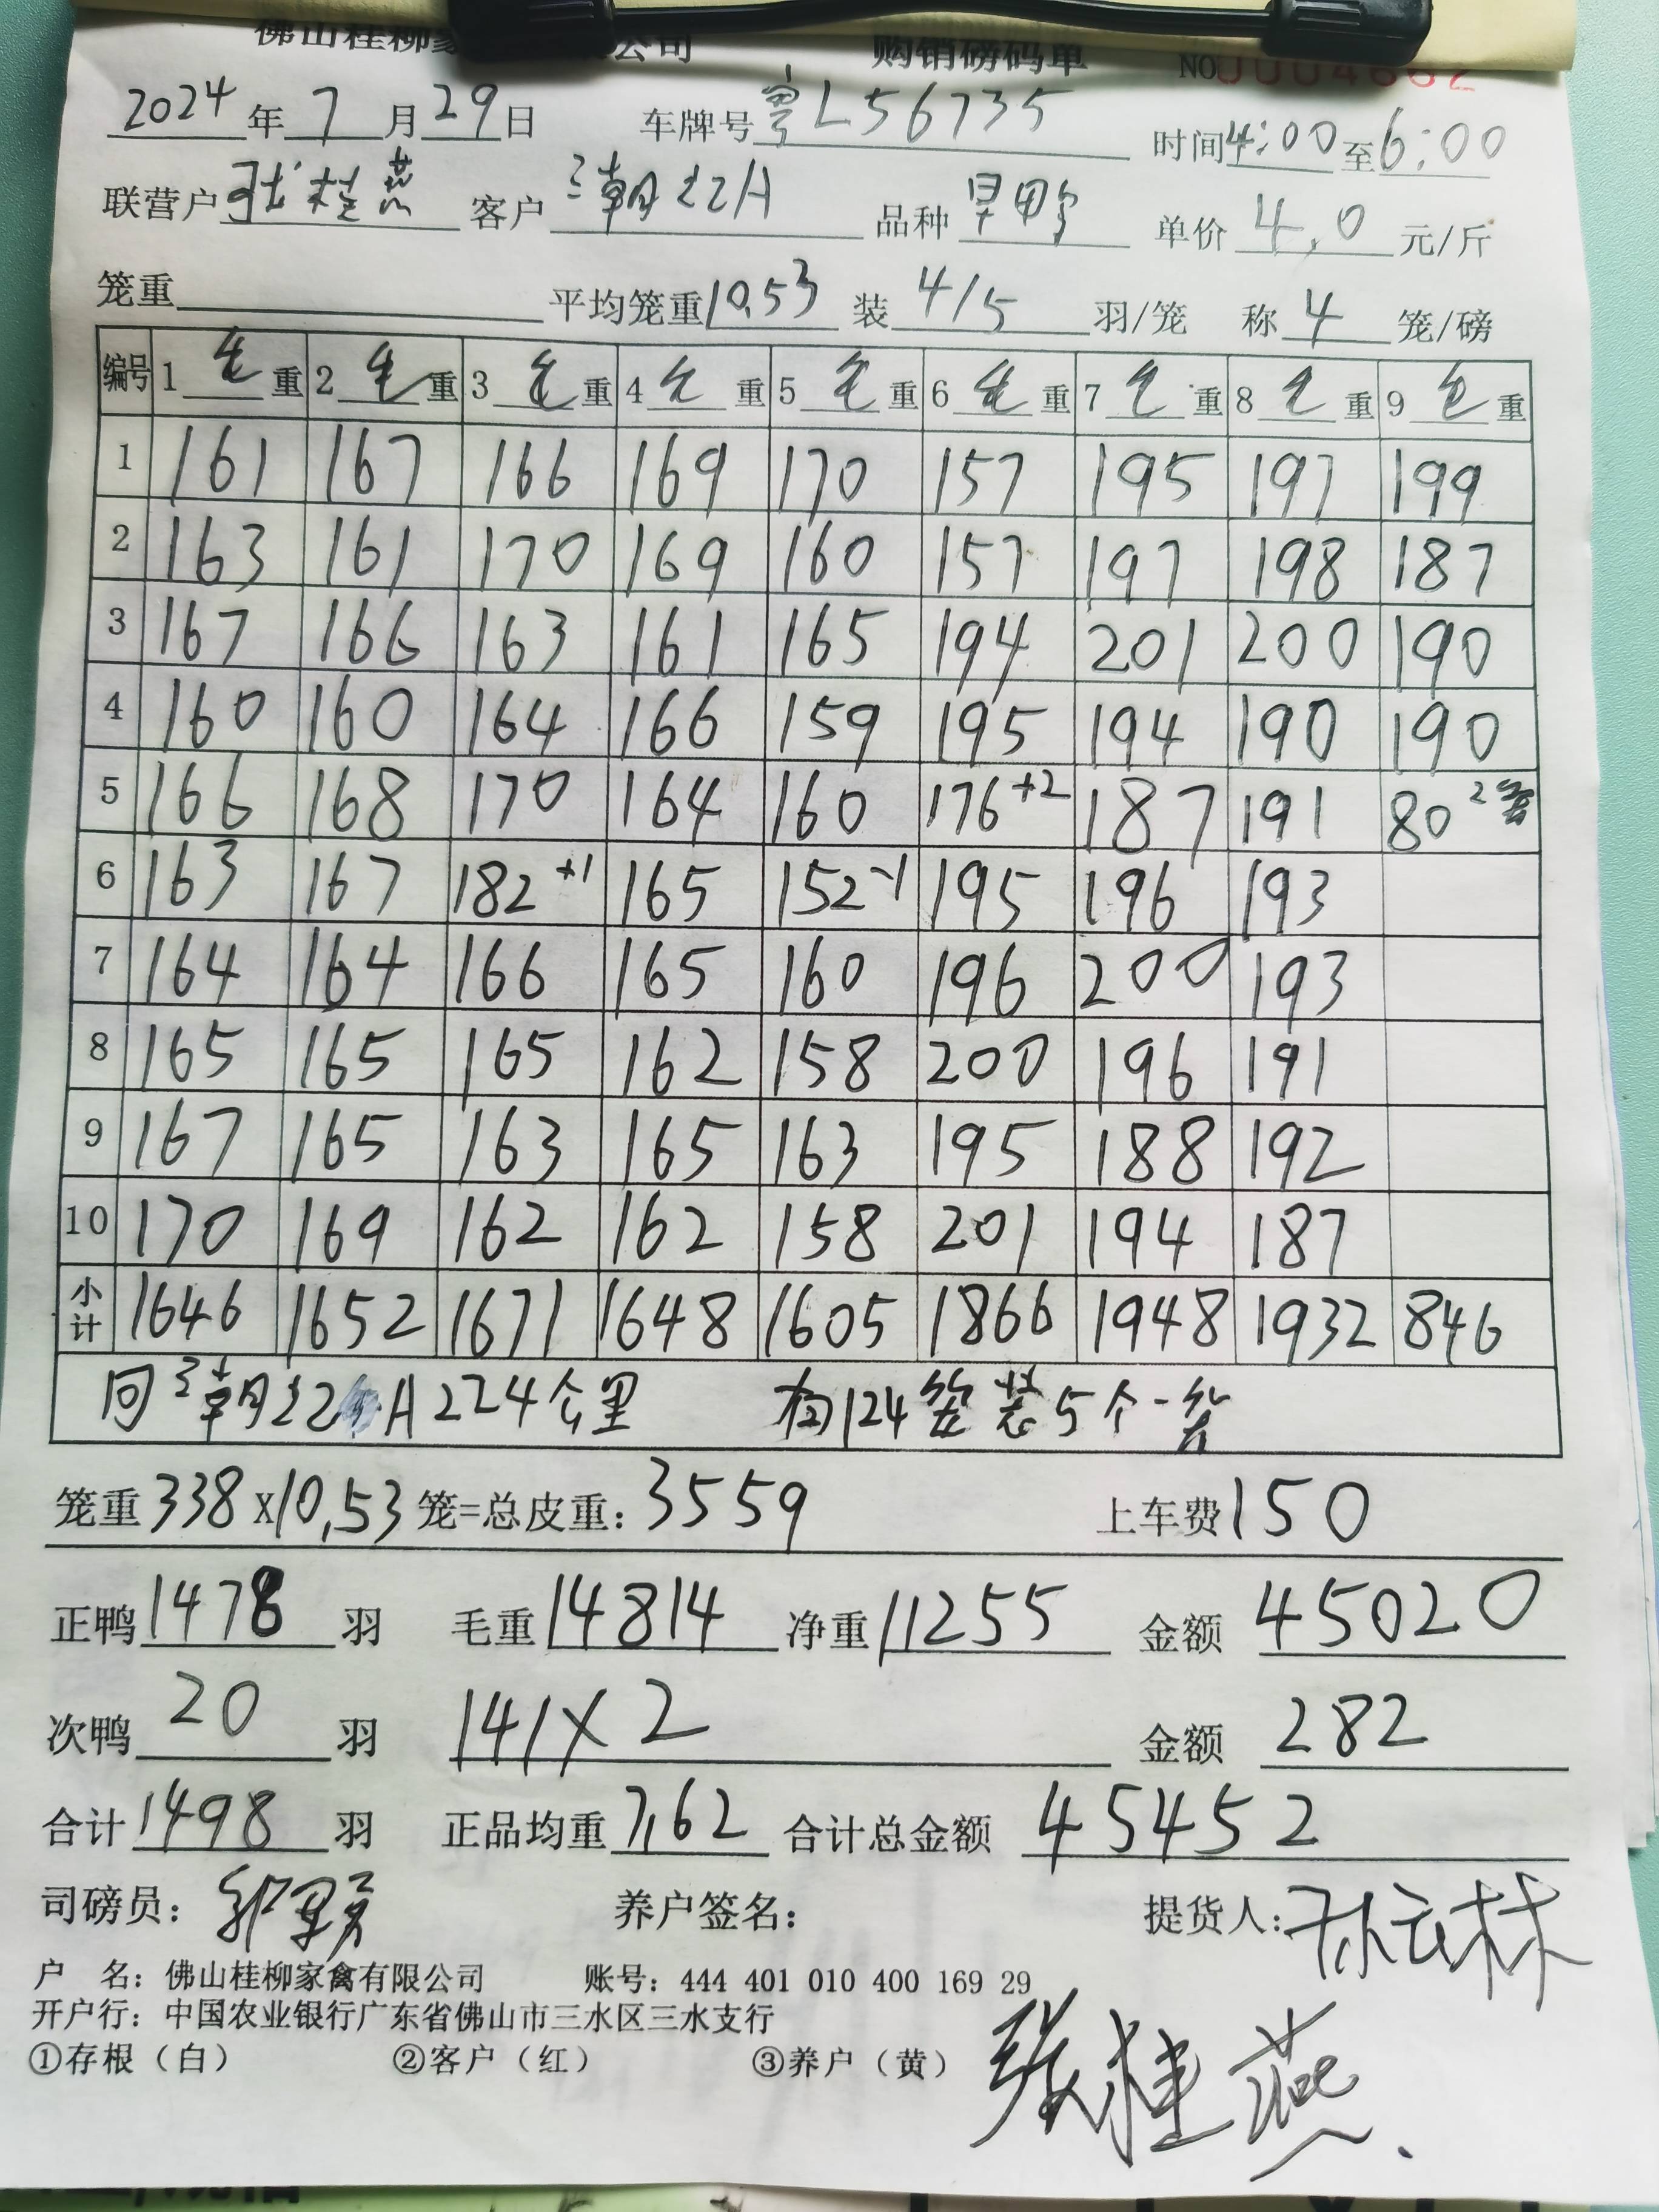 佛山桂柳家 公司 购销磅码单 NO
2024年7月29日 车牌号粤L56735 时间4:00至6:00
联营户张桂燕 客户 潮江A 品种 单价4.0元/斤
笼重 平均笼重10.53 装4/5羽/笼 称4笼/磅
编号 1毛重 2毛重 3毛重 4毛重 5毛重 6毛重 7毛重 8毛重 9毛重
1 161 167 166 169 170 157 195 197 199
2 163 161 170 169 160 157 197 198 187
3 167 166 163 161 165 194 201 200 190
4 160 160 164 166 159 195 194 190 190
5 166 168 170 164 160 176+2 187 191 80 2笼
6 163 167 182+1 165 152-1 195 196 193
7 164 164 166 165 160 196 200 193
8 165 165 165 162 158 200 196 191
9 167 165 163 165 163 195 188 192
10 170 169 162 162 158 201 194 187
小计 1646 1652 1671 1648 1605 1866 1948 1932 846
回 潮江A 224公里 有124笼装5个一笼
笼重338x10.53笼=总皮重:3559 上车费150
正鸭1478羽 毛重14814 净重11255 金额45020
次鸭20羽 141x2 金额282
合计1498羽 正品均重7.62 合计总金额45452
司磅员: 养户签名: 提货人: 林
户 名: 佛山桂柳家禽有限公司 账号: 444 401 010 400 169 29
开户行: 中国农业银行广东省佛山市三水区三水支行
①存根（白） ②客户（红） ③养户（黄）
张桂燕